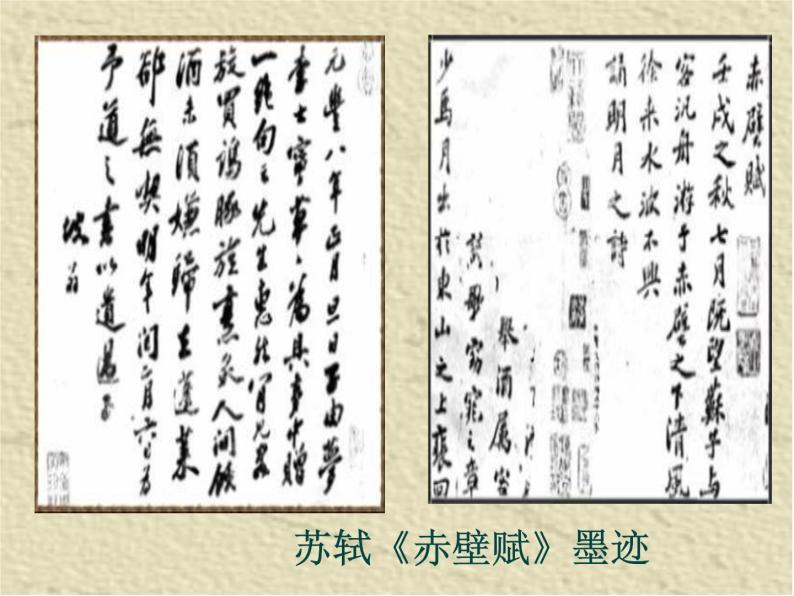 元豐八年正月旦日子由夢
李士寧草草為具夢中贈
一絕句云先生惠然肯見客
旋買鷄豚旋烹炙人間飲
酒未須嫌歸去蓬萊
卻無喫明年閏二月六日為
予道之書以遺過子
坡翁
赤壁賦
壬戌之秋七月既望蘇子与
客汎舟游于赤壁之下清風
徐来水波不興
誦明月之詩
舉酒屬客
窈窕之章
少焉月出於東山之上裵回
苏轼《赤壁赋》墨迹